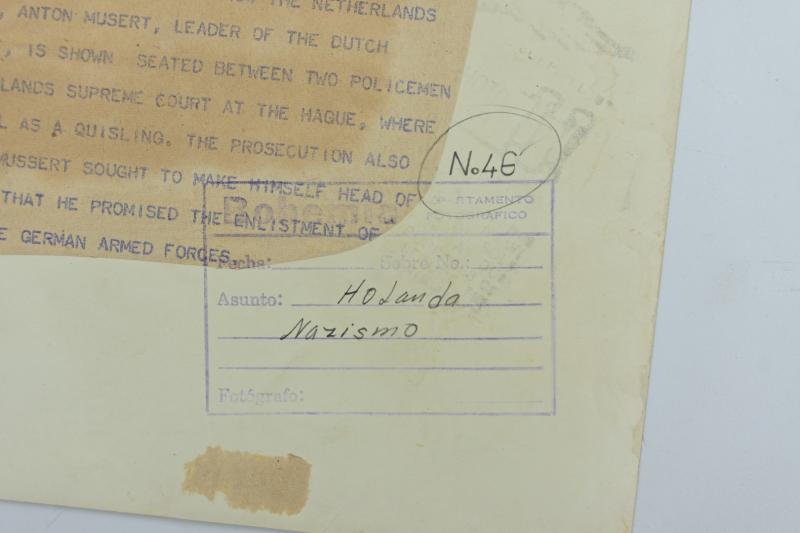 THE NETHERLANDS
, ANTON MUSERT, LEADER OF THE DUTCH
, IS SHOWN SEATED BETWEEN TWO POLICEMEN
LANDS SUPREME COURT AT THE HAGUE, WHERE
L AS A QUISLING. THE PROSECUTION ALSO
MUSSERT SOUGHT TO MAKE HIMSELF HEAD OF
THAT HE PROMISED THE ENLISTMENT OF
E GERMAN ARMED FORCES.
No.46
Bohemia
Fecha: Sobre No.:
Asunto: Holanda
Nazismo
Fotógrafo: